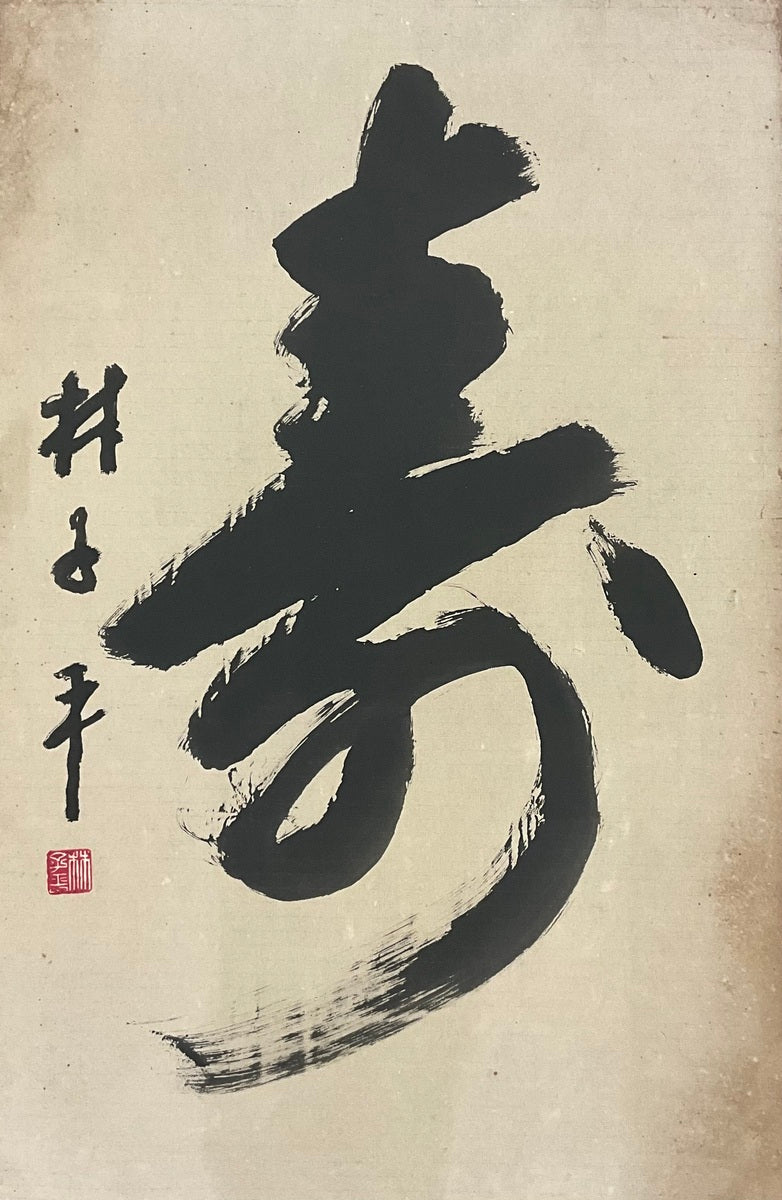 寿
林子平
林子平